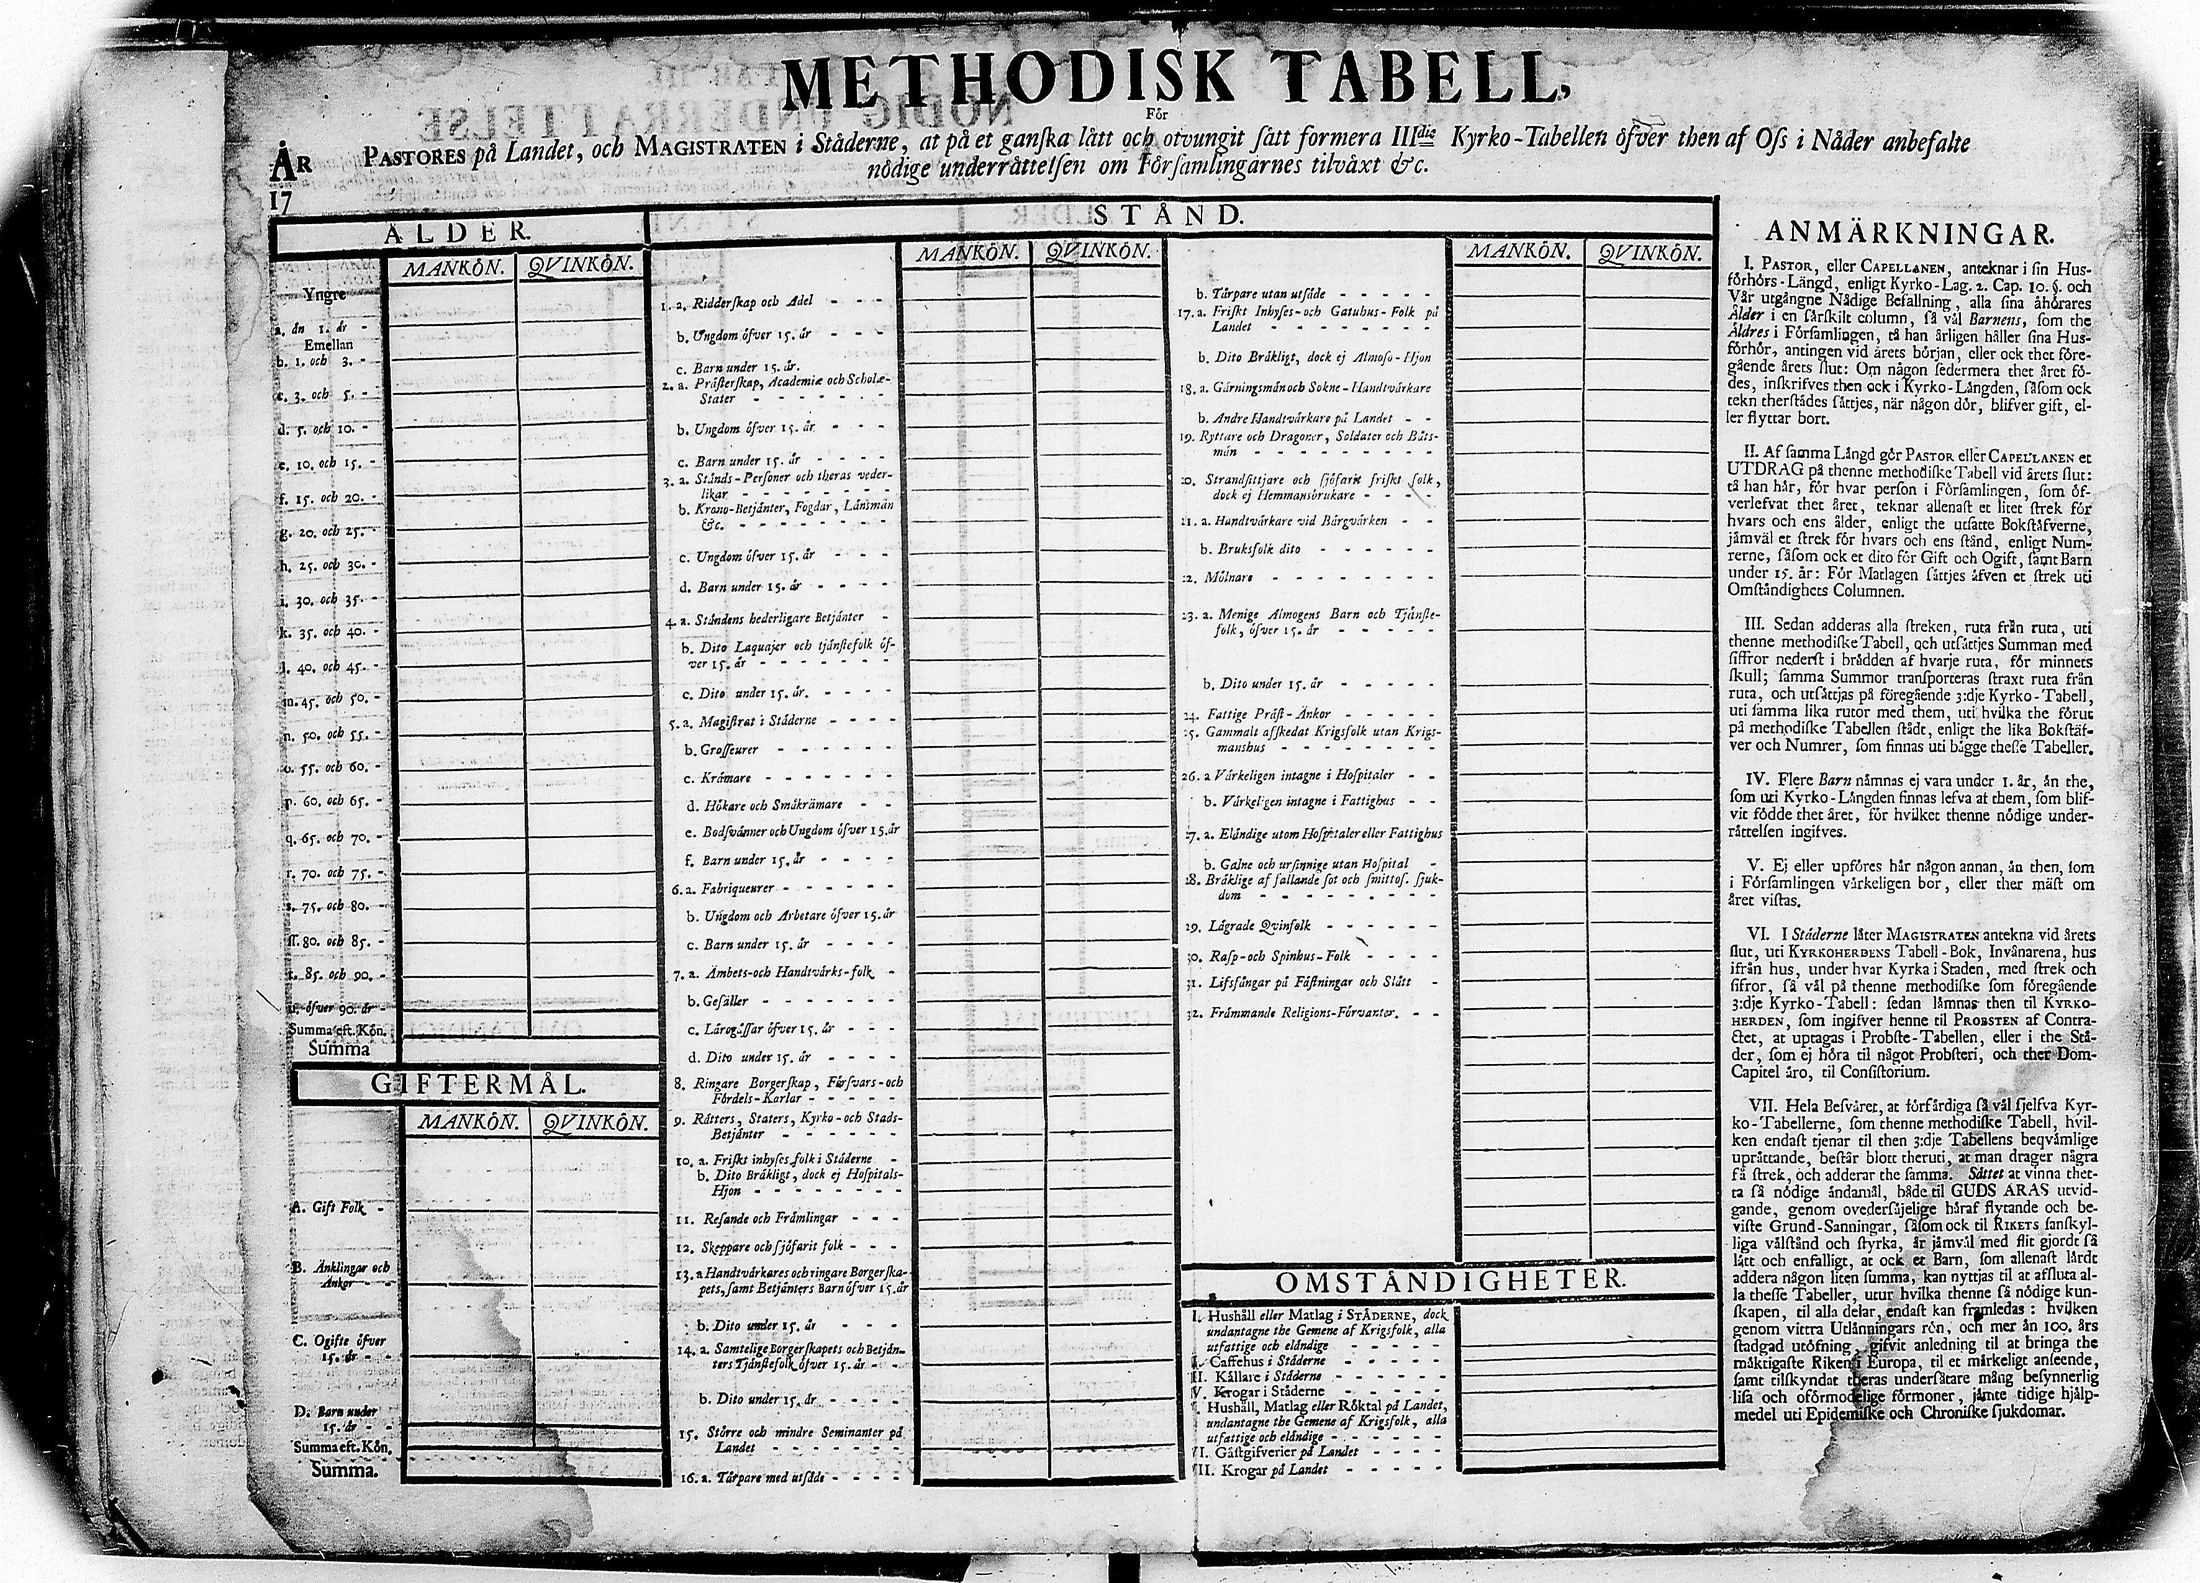 METHODISK TABELL,
För
PASTORES på Landet, och MAGISTRATEN i Ståderne, at på et ganska lått och otvungit sått formera IIIdie Kyrko-Tabellen öfver then af Oss i Nåder anbefalte
nödige underråttelsen om Församlingarnes tilvåxt &c.
ÅR
17
ÅLDER.
MANKÖN. QVINKÖN.
Yngre
a. ån 1. år -
Emellan
b. 1. och 3. -
c. 3. och 5. -
d. 5. och 10. -
e. 10. och 15. -
f. 15. och 20. -
g. 20. och 25. -
h. 25. och 30. -
i. 30. och 35. -
k. 35. och 40. -
l. 40. och 45. -
m. 45. och 50. -
n. 50. och 55. -
o. 55. och 60. -
p. 60. och 65. -
q. 65. och 70. -
r. 70. och 75. -
s. 75. och 80. -
ss. 80. och 85. -
t. 85. och 90. -
u. öfver 90. år -
Summa eft. Kön.
Summa
GIFTERMÅL.
MANKÖN. QVINKÖN.
A. Gift Folk -
B. Ånklingar och
Ånkor - -
C. Ogifte öfver
15. år - -
D. Barn under
15. år - -
Summa eft. Kön.
Summa.
STÅND.
MANKÖN. QVINKÖN.
1. a. Ridderskap och Adel - - -
b. Ungdom öfver 15. år - - -
c. Barn under 15. år.
2. a. Pråsterskap, Academiæ och Scholæ-
Stater - - - - - -
b. Ungdom öfver 15. år - - -
c. Barn under 15. år - - - -
3. a. Stånds-Personer och theras veder-
likar - - - - - - -
b. Krono-Betjånter, Fogdar, Lånsmån
&c. - - - - - - -
c. Ungdom öfver 15. år - - - -
d. Barn under 15. år - - - -
4. a. Ståndens hederligare Betjånter -
b. Dito Laquajer och tjånstefolk öf-
ver 15. år - - - - - -
c. Dito under 15. år. - - - -
5. a. Magistrat i Ståderne - - - -
b. Grosseurer - - - - - -
c. Kråmare - - - - - - -
d. Hökare och Småkråmare - -
e. Bodsvånner och Ungdom öfver 15. år
f. Barn under 15. år - - - -
6. a. Fabriqueurer - - - - - -
b. Ungdom och Arbetare öfver 15. år
c. Barn under 15. år - - - -
7. a. Åmbets-och Handtvårks-folk -
b. Gesåller - - - - - - -
c. Lårogåssar öfver 15. år - - -
d. Dito under 15. år - - - -
8. Ringare Borgerskap, Försvars-och
Fördels-Karlar - - - - -
9. Råtters, Staters, Kyrko-och Stads-
Betjånter - - - - - -
10. a. Friskt inhyses folk i Ståderne -
b. Dito Bråkligt, dock ej Hospitals-
Hjon - - - - - - -
11. Resande och Fråmlingar - - -
12. Skeppare och sjöfarit folk - - -
13. a Handtvårkares och ringare Borgerska-
pets, samt Betjånters Barn öfver 15. år
b. Dito under 15. år - - - -
14. a. Samtelige Borgerskapets och Betjån-
ters Tjånstefolk öfver 15. år - -
b. Dito under 15. år - - - -
15. Större och mindre Seminanter på
Landet - - - - - - -
16. a. Tårpare med utsåde - - - -
MANKÖN. QVINKÖN.
b. Tårpare utan utsåde - - - - -
17. a. Friskt Inhyses-och Gatuhus-Folk på
Landet - - - - - - - -
b. Dito Bråkligt, dock ej Almoso-Hjon
18. a. Gårningsmån och Sokne-Handtvårkare
b. Andre Handtvårkare på Landet - -
19. Ryttare och Dragoner, Soldater och Båts-
mån - - - - - - - -
20. Strandsittjare och sjöfarit friskt folk,
dock ej Hemmansbrukare - - - -
21. a. Handtvårkare vid Bårgvårken - -
b. Bruksfolk dito - - - - - -
22. Mölnare - - - - - - - -
23. a. Menige Almogens Barn och Tjånste-
folk, öfver 15. år - - - - -
b. Dito under 15. år - - - - -
24. Fattige Pråst-Änkor - - - - -
25. Gammalt afskedat Krigsfolk utan Krigs-
manshus - - - - - - -
26. a Vårkeligen intagne i Hospitaler - -
b. Vårkeligen intagne i Fattighus - -
27. a. Elåndige utom Hospitaler eller Fattighus
b. Galne och ursinnige utan Hospital -
28. Bråklige af fallande sot och smittos. sjuk-
dom - - - - - - - -
29. Lågrade Qvinfolk - - - - - -
30. Rasp-och Spinhus-Folk - - - -
31. Lifsfångar på Fåstningar och Slått -
32. Fråmmande Religions-Förvanter. - -
OMSTÅNDIGHETER.
I. Hushåll eller Matlag i STÅDERNE, dock
undantagne the Gemene af Krigsfolk, alla
utfattige och elåndige - - - - -
Caffehus i Ståderne - - - - -
II. Kållare i Ståderne - - - - -
V. Krogar i Ståderne - - - - -
Hushåll, Matlag eller Röktal på Landet,
undantagne the Gemene af Krigsfolk, alla
utfattige och elåndige - - - - -
VI. Gåstgifverier på Landet - - - -
VII. Krogar på Landet - - - - -
ANMÄRKNINGAR.
I. PASTOR, eller CAPELLANEN, anteknar i sin Hus-
förhörs-Långd, enligt Kyrko-Lag. 2. Cap. 10. §. och
Vår utgångne Nådige Befallning, alla sina åhörares
Ålder i en sårskilt column, så vål Barnens, som the
Åldres i Församlingen, tå han årligen håller sina Hus-
förhör, antingen vid årets början, eller ock thet före-
gående årets slut: Om någon sedermera thet året fö-
des, inskrifves then ock i Kyrko-Långden, såsom ock
tekn therstådes såttjes, når någon dör, blifver gift, el-
ler flyttar bort.
II. Af samma Långd gör PASTOR eller CAPELLANEN et
UTDRAG på thenne methodiske Tabell vid årets slut:
tå han hår, för hvar person i Församlingen, som öf-
verlefvat thet året, teknar allenast et litet strek för
hvars och ens ålder, enligt the utsatte Bokståfverne,
jåmväl et strek för hvars och ens stånd, enligt Num-
rerne, såsom ock et dito för Gift och Ogift, samt Barn
under 15. år: För Matlagen såttjes åfven et strek uti
Omståndighets Columnen.
III. Sedan adderas alla streken, ruta från ruta, uti
thenne methodiske Tabell, och utsåttjes Summan med
siffror nederst i brådden af hvarje ruta, för minnets
skull; samma Summor transporteras straxt ruta från
ruta, och utsåttjas på föregående 3:dje Kyrko-Tabell,
uti samma lika rutor med them, uti hvilka the förut
på methodiske Tabellen stådt, enligt the lika Bokståf-
ver och Numrer, som finnas uti bågge thesse Tabeller.
IV. Flere Barn nåmnas ej vara under 1. år, ån the,
som uti Kyrko-Långden finnas lefva af them, som blif-
vit födde thet året, för hvilket thenne nödige under-
råttelsen ingifves.
V. Ej eller upföres hår någon annan, ån then, som
i Församlingen vårkeligen bor, eller ther måst om
året vistas.
VI. I Ståderne låter MAGISTRATEN antekna vid årets
slut, uti KYRKOHERDENS Tabell-Bok, Invånarena, hus
ifrån hus, under hvar Kyrka i Staden, med strek och
sifror, så vål på thenne methodiske som föregående
3:dje Kyrko-Tabell: sedan låmnas then til KYRKO-
HERDEN, som ingifver henne til PROBSTEN af Contra-
ctet, at uptagas i Probste-Tabellen, eller i the Stå-
der, som ej höra til något Probsteri, och ther Dom-
Capitel åro, til Consistorium.
VII. Hela Besvåret, at förfårdiga så vål sjelfva Kyr-
ko-Tabellerne, som thenne methodiske Tabell, hvil-
ken endast tjenar til then 3:dje Tabellens beqvåmlige
upråttande, består blott theruti, at man drager några
få strek, och adderar the samma. Såttet at vinna thet-
ta så nödige åndamål, både til GUDS ÅRAS utvid-
gande, genom ovedersåjelige håraf flytande och be-
viste Grund-Sanningar, såsom ock til RIKETS sanskyl-
liga vålstånd och styrka, år jåmvål med flit gjordt så
lått och enfalligt, at ock et Barn, som allenast lårdt
addera någon liten summa, kan nyttjas til at afsluta al-
la thesse Tabeller, utur hvilka thenne så nödige kun-
skapen, til alla delar, endast kan framledas: hvilken
genom vittra Utlånningars rön, och mer ån 100. års
stadgad utöfning, gifvit anledning til at bringa the
måktigaste Riken i Europa, til et mårkeligt anseende,
samt tilskyndat theras undersåtare mång besynnerlig
lisa och oförmodelige förmoner, jåmte tidige hjålp-
medel uti Epidemiske och Chroniske sjukdomar.